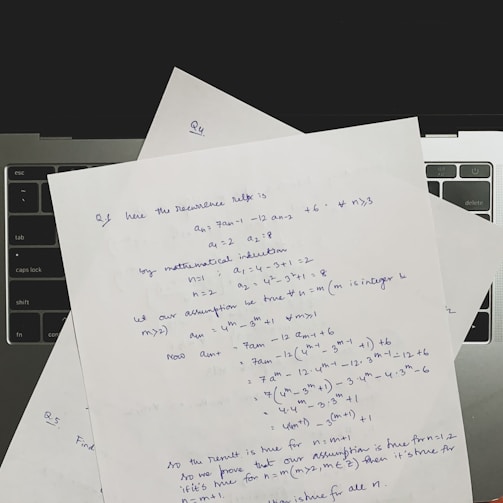 Q4
esc
tab
caps lock
shift
fn
delete
Q.1 here the recurrence reltn is
aₙ = 7aₙ₋₁ - 12 aₙ₋₂ + 6 · ∀ n≥3
a₁ = 2 a₂ = 8
by mathematical induction
n=1 ; a₁ = 4 - 3 + 1 = 2
n = 2 a₂ = 4² - 3² + 1 = 8
let our assumption be true ∀ n = m (m is integer &
m≥2) aₘ = 4ᵐ - 3ᵐ + 1 ∀ m≥1
Now aₘ₊₁ = 7aₘ - 12 aₘ₋₁ + 6
= 7aₘ - 12(4ᵐ⁻¹ - 3ᵐ⁻¹ + 1) + 6
= 7aᵐ - 12·4ᵐ⁻¹ - 12·3ᵐ⁻¹ - 12 + 6
= 7(4ᵐ - 3ᵐ + 1) - 3·4ᵐ - 4·3ᵐ - 6
= 4·4ᵐ - 3·3ᵐ + 1
= 4⁽ᵐ⁺¹⁾ - 3⁽ᵐ⁺¹⁾ + 1
so the result is true for n = m+1
so we prove that our assumption is true for n=1,2
if it's true for n = m (m>2, m∈Z) then it's true for
n = m+1.
is true for all n.
Q.5
Find